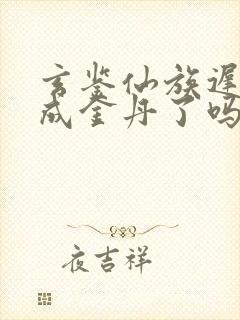 玄鉴仙族迟
成金丹了吗
夜吉祥